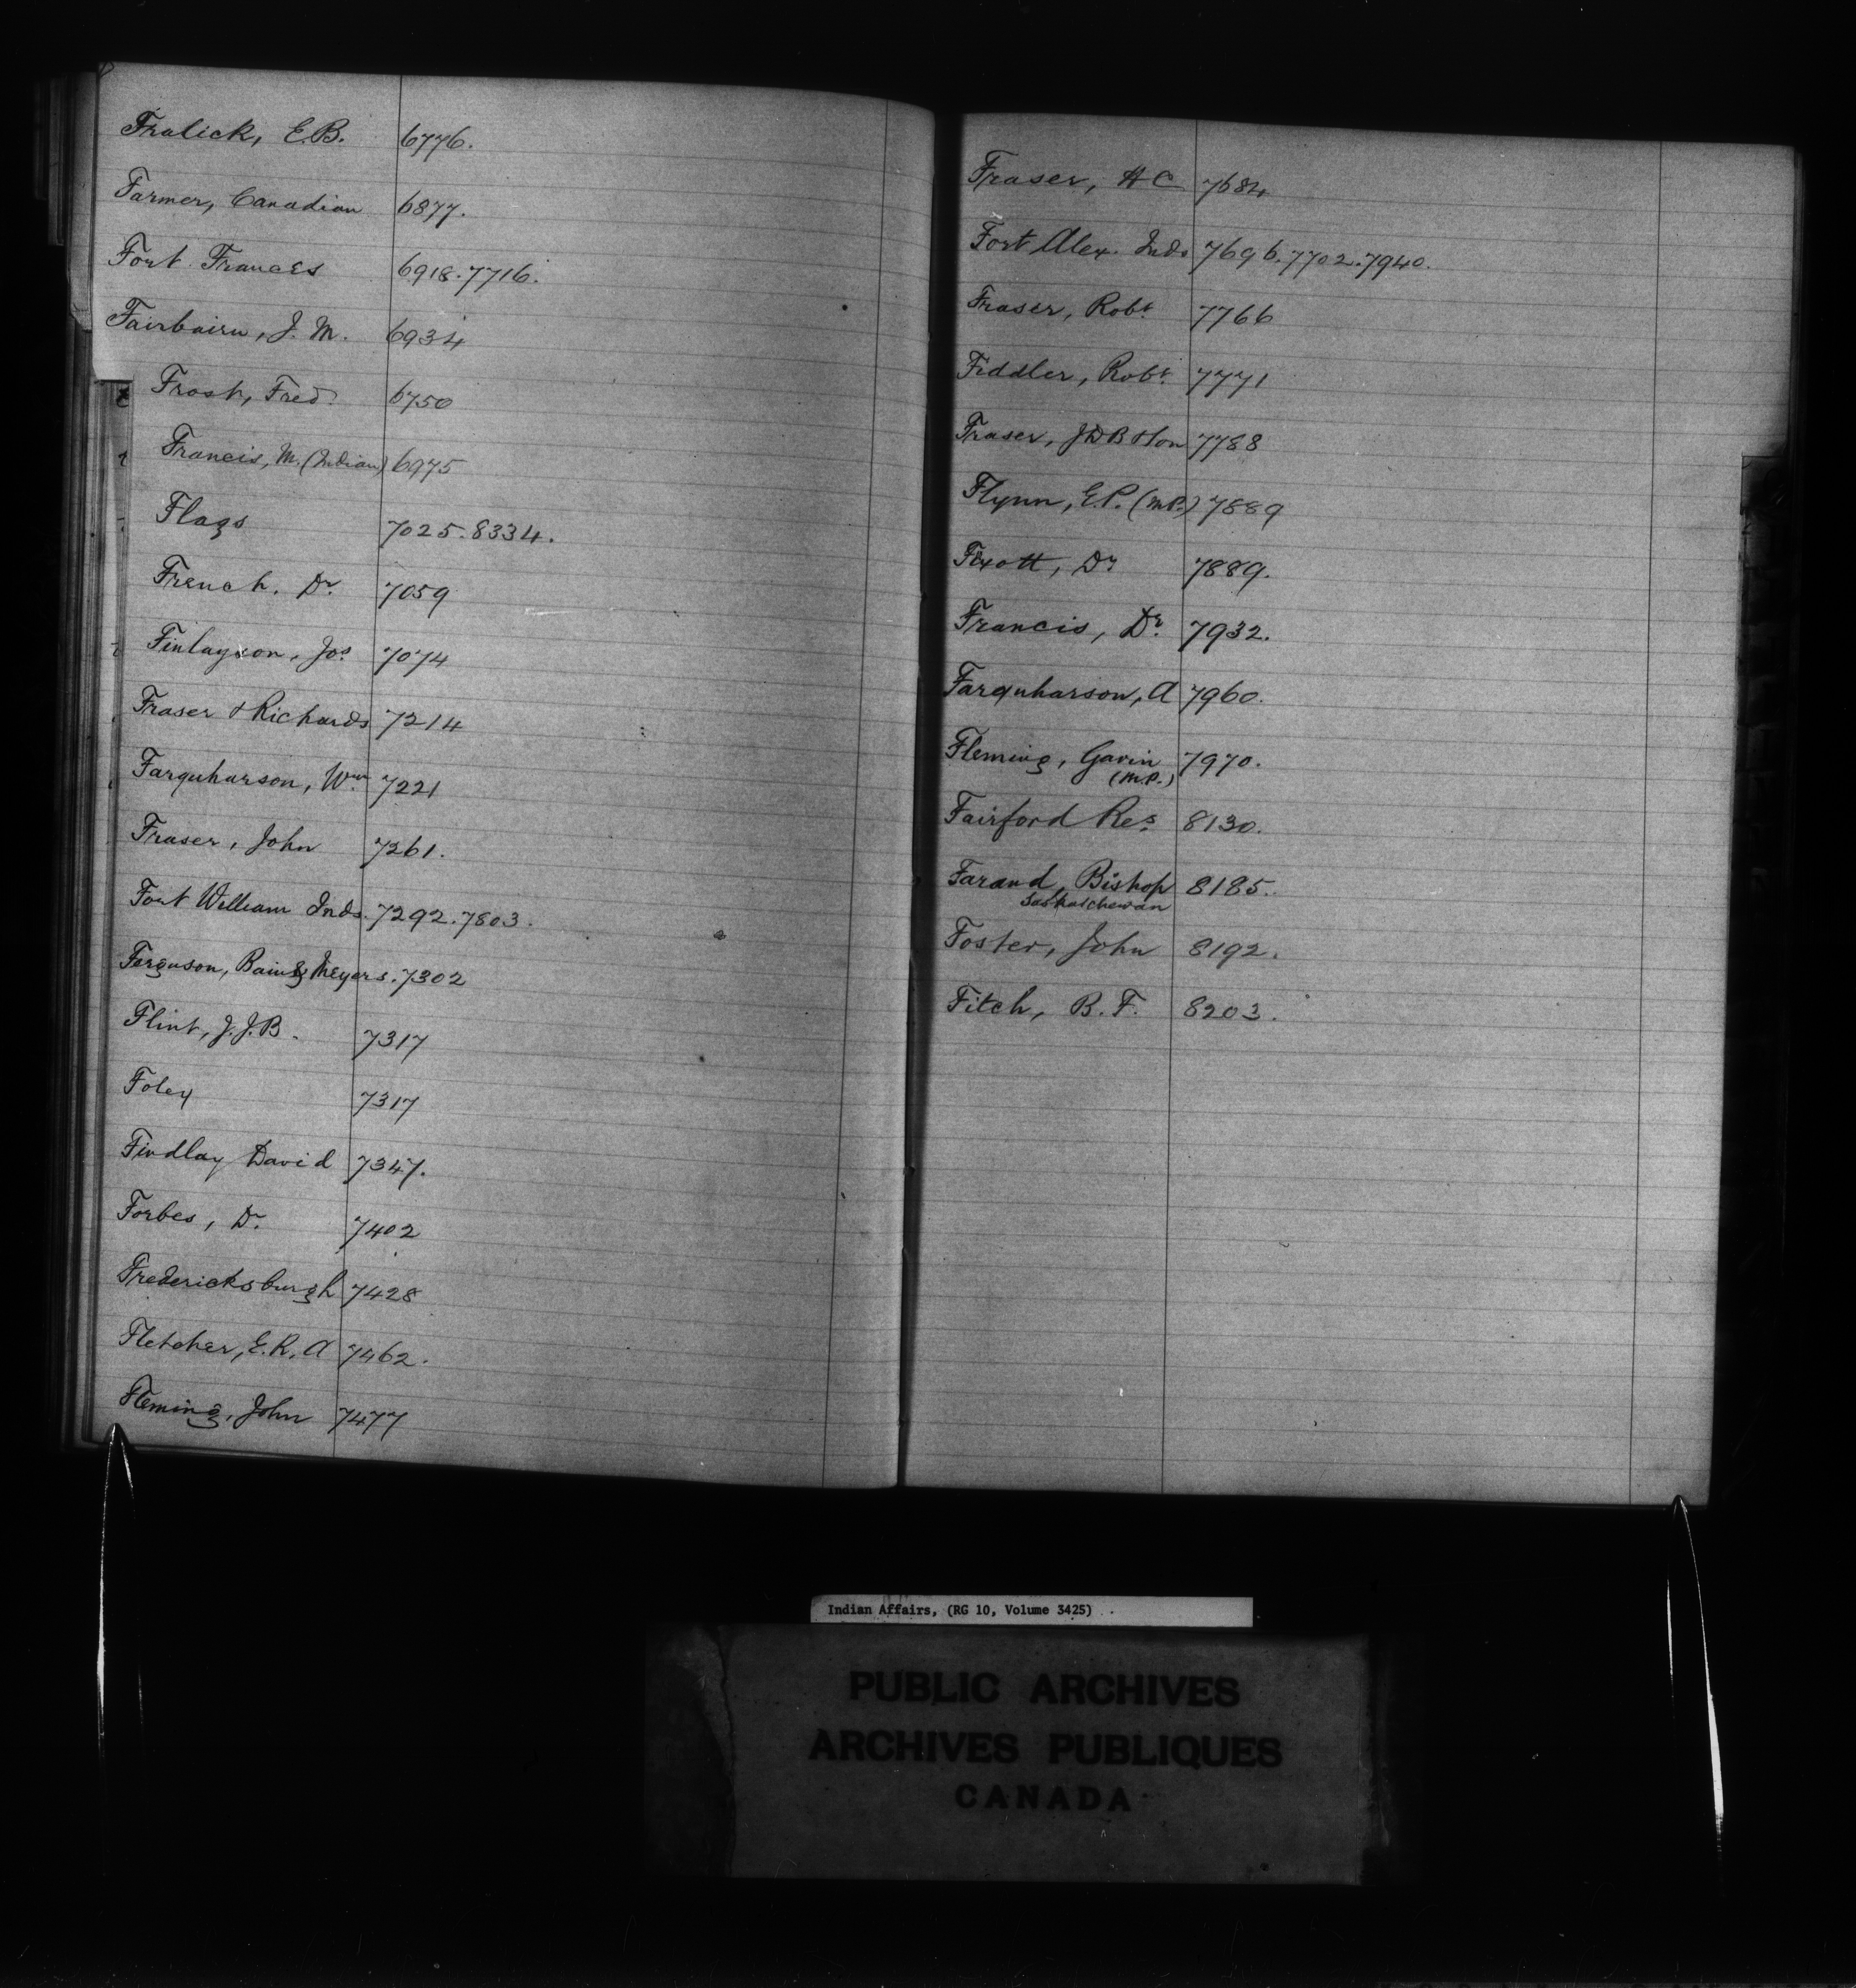 Fralick, E.B. 6776.
Farmer, Canadian 6877.
Fort Frances 6918.7716.
Fairbairn, J. M. 6934
Frost, Fred. 6750
Francis, M. (Indian) 6975
Flags 7025.8334.
French. Dr. 7059
Finlayson, Jos. 7074
Fraser & Richards 7214
Farquharson, Wm. 7221
Fraser, John 7261.
Fort William Inds. 7292.7803.
Ferguson, Bain & Meyers. 7302
Flint, J.J.B. 7317
Foley 7317
Findlay David 7347.
Forbes, Dr. 7402
Fredericksburgh 7428
Fletcher, E.R, A 7462.
Fleming, John 7477
Fraser, H C 7684
Fort Alex. Inds 7696.7702.7940.
Fraser, Robt. 7766
Fiddler, Robt. 7771
Fraser, JDB Hon 7788
Flynn, E.P. (M.P.) 7889
Fixott, Dr 7889.
Francis, Dr. 7932.
Farquharson, A 7960.
Fleming, Gavin 7970.
(M.P.)
Fairford Res. 8130.
Farand, Bishop 8185.
Saskatchewan
Foster, John 8192.
Fitch, B. F. 8203.
Indian Affairs, (RG 10, Volume 3425)
PUBLIC ARCHIVES
ARCHIVES PUBLIQUES
CANADA